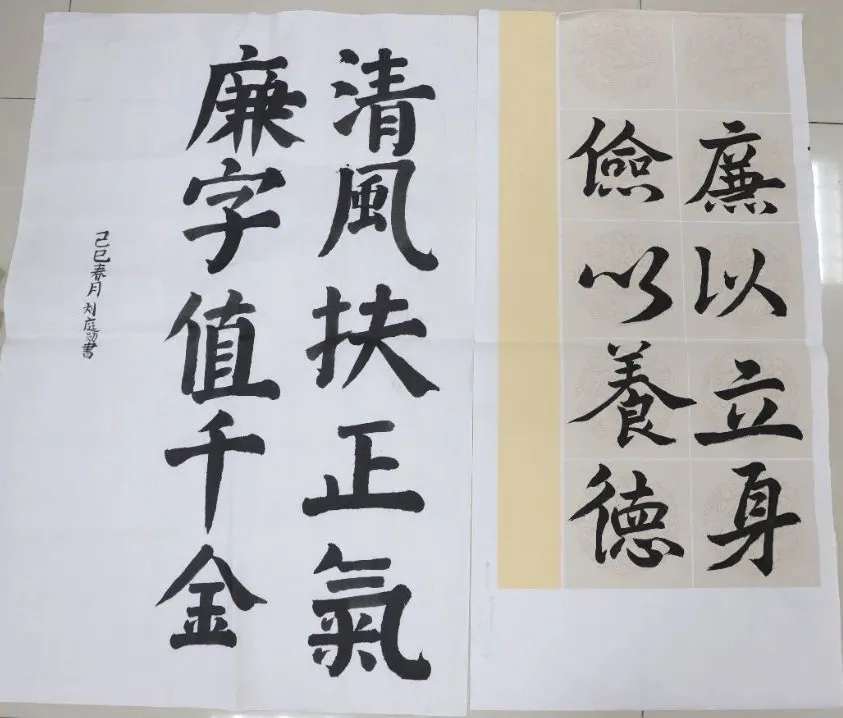 廉以立身
儉以養德
清風扶正氣
廉字值千金
己巳春月 刘庭書